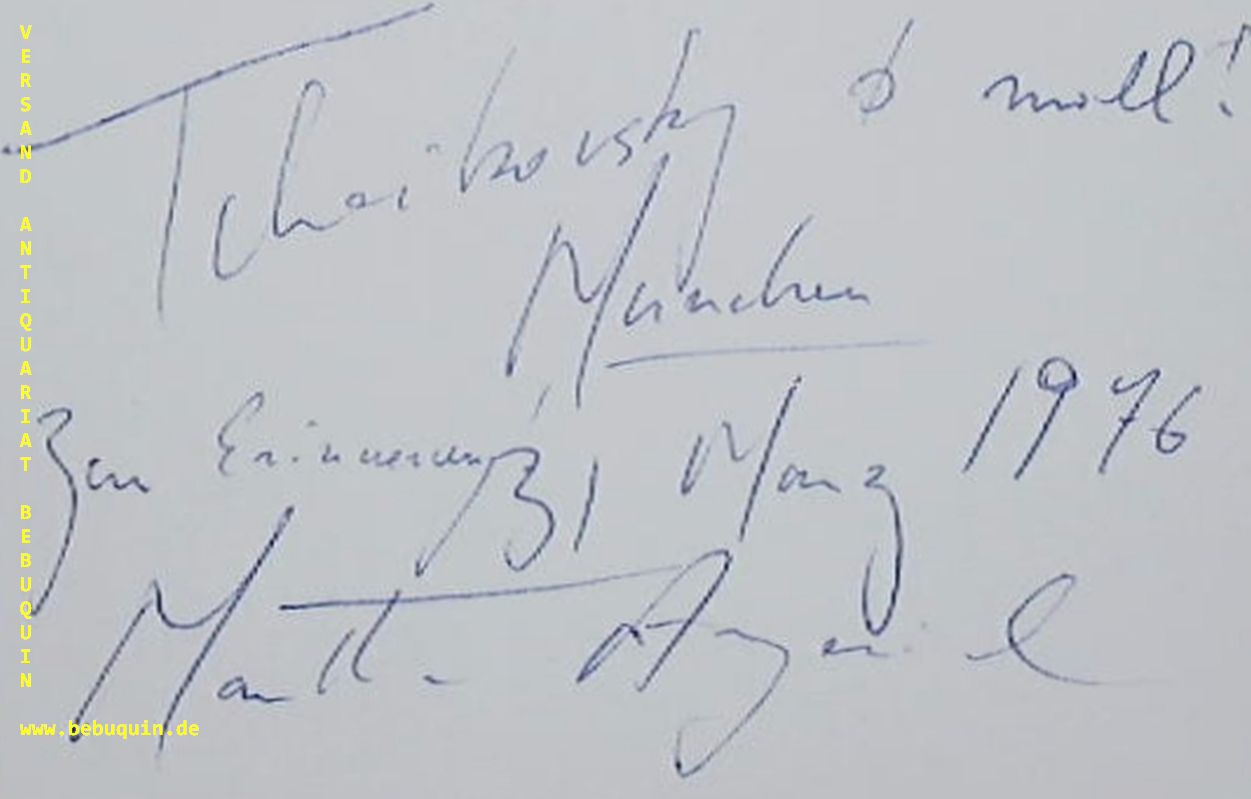 Tchaikovsky b moll!
München
Zur Erinnerung 31 März 1976
Martha Argerich
VERSAND ANTIQUARIAT BEBUQUIN
www.bebuquin.de